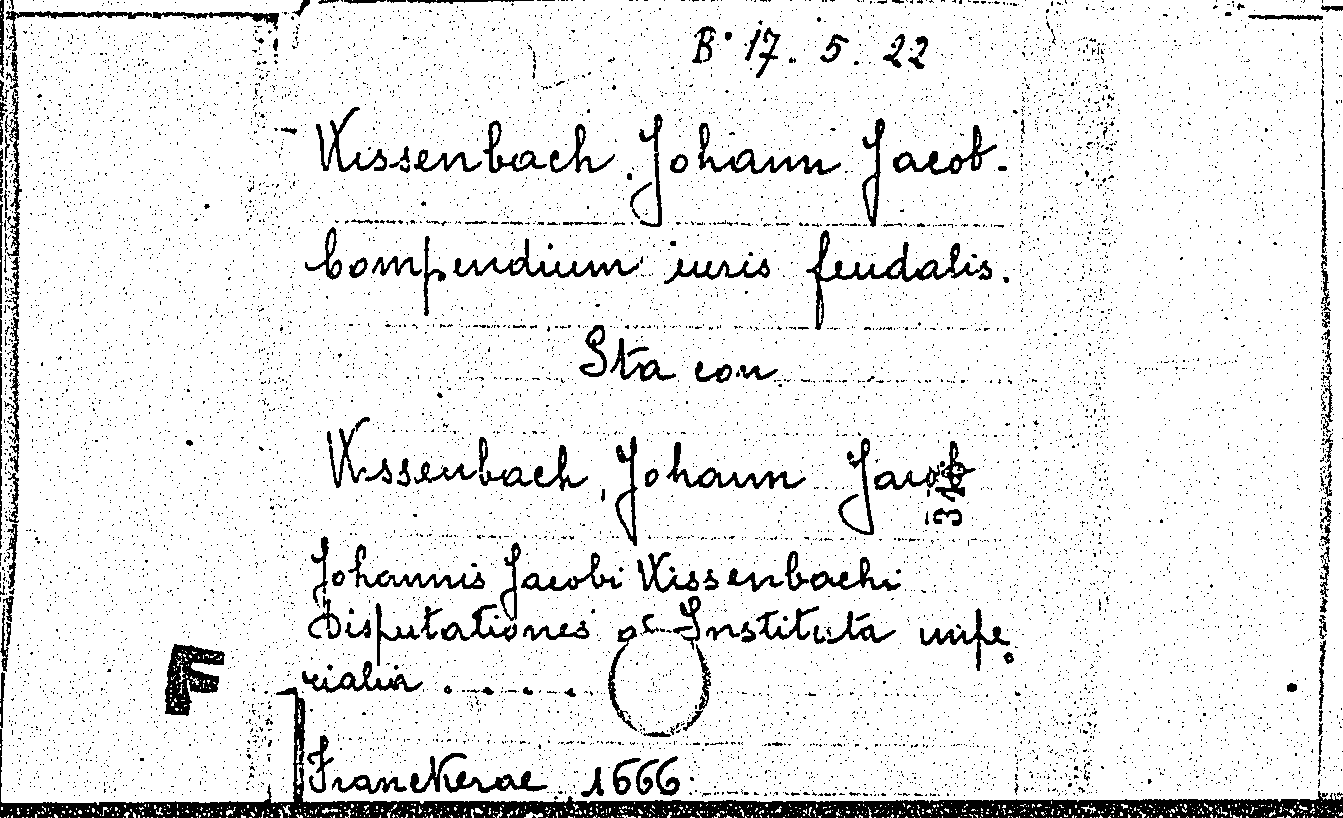 B. 17. 5. 22
Wissenbach, Johann Jacob.
Compendium iuris feudalis.
Sta con
Wissenbach, Johann Jacob
318
Johannis Jacobi Wissenbachi
Disputationes ad Instituta impe
rialia . . . .
F
Franekerae 1666.